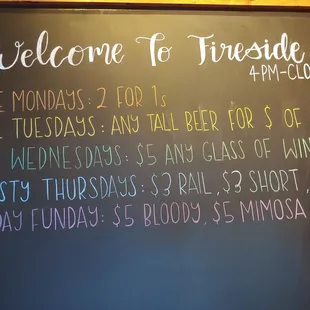 Welcome To Fireside
4PM-CLO
E MONDAYS: 2 FOR 1s
TUESDAYS: ANY TALL BEER FOR $ OF
WEDNESDAYS: $5 ANY GLASS OF WIN
STY THURSDAYS: $3 RAIL, $3 SHORT,
DAY FUNDAY: $5 BLOODY, $5 MIMOSA